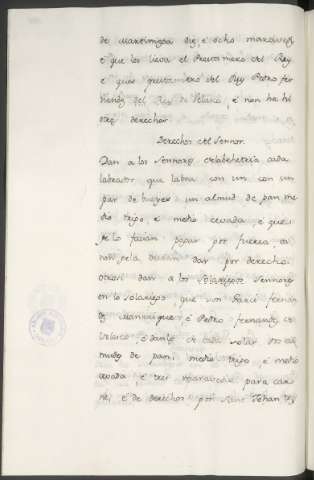 de martiniega diez e ocho maravedis
e que los lieva el Prestamero del Rey
e que es prestamero del Rey Pedro Fer
nandez de Velasco, e non ha hi
otros derechos.
Derechos del Sennor
Dan a los Sennores dela behetria cada
labrador que labra con un con un
par de bueyes un almud de pan me
dio trigo, e medio cevada, e que
ge lo facian pagar por fuerza, ca
non gela devian dar por derecho.
Otrosi dan a los Solariegos Sennores
en lo Solariego, que son Garci Fernan
dez Manrrique, e Pedro Fernandez de
Velasco, e danle de cada solar dos al
mudes de pan: medio trigo, e medio
cevada, e tres maravedis para car
ne, e de derechos por Sant Johan tres